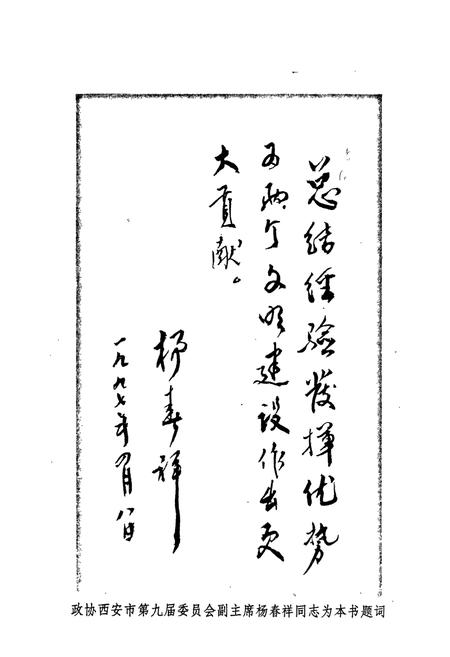 总结经验发挥优势
为两个文明建设作出更
大贡献。
杨春祥
一九九七年四月八日
政协西安市第九届委员会副主席杨春祥同志为本书题词